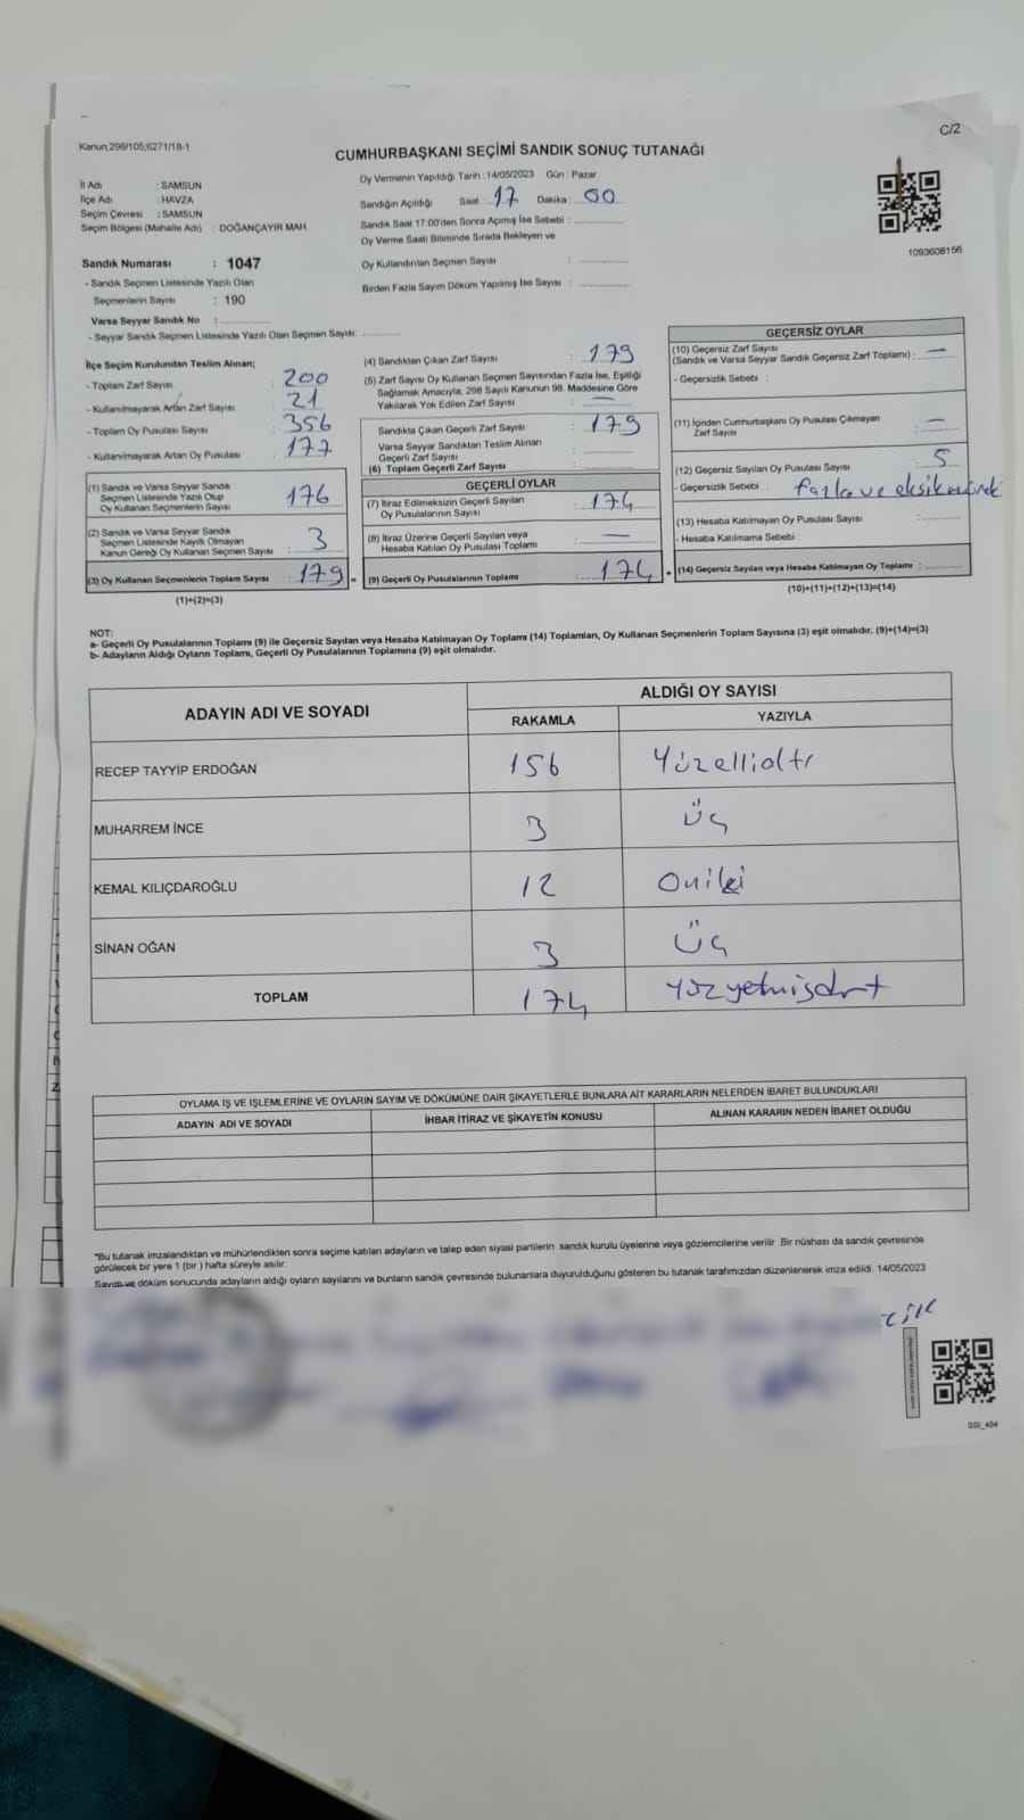 Kanun;298/105;6271/18-1
C/2
CUMHURBAŞKANI SEÇİMİ SANDIK SONUÇ TUTANAĞI
İl Adı : SAMSUN
İlçe Adı : HAVZA
Seçim Çevresi : SAMSUN
Seçim Bölgesi (Mahalle Adı) : DOĞANÇAYIR MAH.
Oy Vermenin Yapıldığı Tarih : 14/05/2023 Gün : Pazar
Sandığın Açıldığı Saat : 17 Dakika : 00
Sandık Saat 17:00'den Sonra Açılmış İse Sebebi :
Oy Verme Saati Bitiminde Sırada Bekleyen ve
Oy Kullandırılan Seçmen Sayısı :
Birden Fazla Sayım Döküm Yapılmış İse Sayısı :
1093608156
Sandık Numarası : 1047
- Sandık Seçmen Listesinde Yazılı Olan
Seçmenlerin Sayısı : 190
Varsa Seyyar Sandık No :
- Seyyar Sandık Seçmen Listesinde Yazılı Olan Seçmen Sayısı:
İlçe Seçim Kurulundan Teslim Alınan;
- Toplam Zarf Sayısı 200
- Kullanılmayarak Artan Zarf Sayısı 21
- Toplam Oy Pusulası Sayısı 356
- Kullanılmayarak Artan Oy Pusulası 177
(1) Sandık ve Varsa Seyyar Sandık
Seçmen Listesinde Yazılı Olup
Oy Kullanan Seçmenlerin Sayısı 176
(2) Sandık ve Varsa Seyyar Sandık
Seçmen Listesinde Kayıtlı Olmayan
Kanun Gereği Oy Kullanan Seçmen Sayısı 3
(3) Oy Kullanan Seçmenlerin Toplam Sayısı : 179
(1)+(2)=(3)
(4) Sandıktan Çıkan Zarf Sayısı : 179
(5) Zarf Sayısı Oy Kullanan Seçmen Sayısından Fazla İse, Eşitliği
Sağlamak Amacıyla, 298 Sayılı Kanunun 98. Maddesine Göre
Yakılarak Yok Edilen Zarf Sayısı : —
Sandıkta Çıkan Geçerli Zarf Sayısı : 179
Varsa Seyyar Sandıktan Teslim Alınan
Geçerli Zarf Sayısı
(6) Toplam Geçerli Zarf Sayısı
GEÇERLİ OYLAR
(7) İtiraz Edilmeksizin Geçerli Sayılan
Oy Pusulalarının Sayısı : 174
(8) İtiraz Üzerine Geçerli Sayılan veya
Hesaba Katılan Oy Pusulası Toplamı : —
(9) Geçerli Oy Pusulalarının Toplamı : 174
GEÇERSİZ OYLAR
(10) Geçersiz Zarf Sayısı
(Sandık ve Varsa Seyyar Sandık Geçersiz Zarf Toplamı) : —
- Geçersizlik Sebebi :
(11) İçinden Cumhurbaşkanı Oy Pusulası Çıkmayan
Zarf Sayısı : —
(12) Geçersiz Sayılan Oy Pusulası Sayısı 5
- Geçersizlik Sebebi : fazla ve eksik
(13) Hesaba Katılmayan Oy Pusulası Sayısı :
- Hesaba Katılmama Sebebi :
(14) Geçersiz Sayılan veya Hesaba Katılmayan Oy Toplamı :
(10)+(11)+(12)+(13)=(14)
NOT:
a- Geçerli Oy Pusulalarının Toplamı (9) ile Geçersiz Sayılan veya Hesaba Katılmayan Oy Toplamı (14) Toplamları, Oy Kullanan Seçmenlerin Toplam Sayısına (3) eşit olmalıdır. (9)+(14)=(3)
b- Adayların Aldığı Oyların Toplamı, Geçerli Oy Pusulalarının Toplamına (9) eşit olmalıdır.
ADAYIN ADI VE SOYADI
ALDIĞI OY SAYISI
RAKAMLA YAZIYLA
RECEP TAYYİP ERDOĞAN 156 Yüzellialtı
MUHARREM İNCE 3 Üç
KEMAL KILIÇDAROĞLU 12 Oniki
SİNAN OĞAN 3 Üç
TOPLAM 174 Yüzyetmişdört
OYLAMA İŞ VE İŞLEMLERİNE VE OYLARIN SAYIM VE DÖKÜMÜNE DAİR ŞİKAYETLERLE BUNLARA AİT KARARLARIN NELERDEN İBARET BULUNDUKLARI
ADAYIN ADI VE SOYADI İHBAR İTİRAZ VE ŞİKAYETİN KONUSU ALINAN KARARIN NEDEN İBARET OLDUĞU
"Bu tutanak imzalandıktan ve mühürlendikten sonra seçime katılan adayların ve talep eden siyasi partilerin sandık kurulu üyelerine veya gözlemcilerine verilir. Bir nüshası da sandık çevresinde
görülecek bir yere 1 (bir) hafta süreyle asılır.
Sayım ve döküm sonucunda adayların aldığı oyların sayılarını ve bunların sandık çevresinde bulunanlara duyurulduğunu gösteren bu tutanak tarafımızdan düzenlenerek imza edildi. 14/05/2023